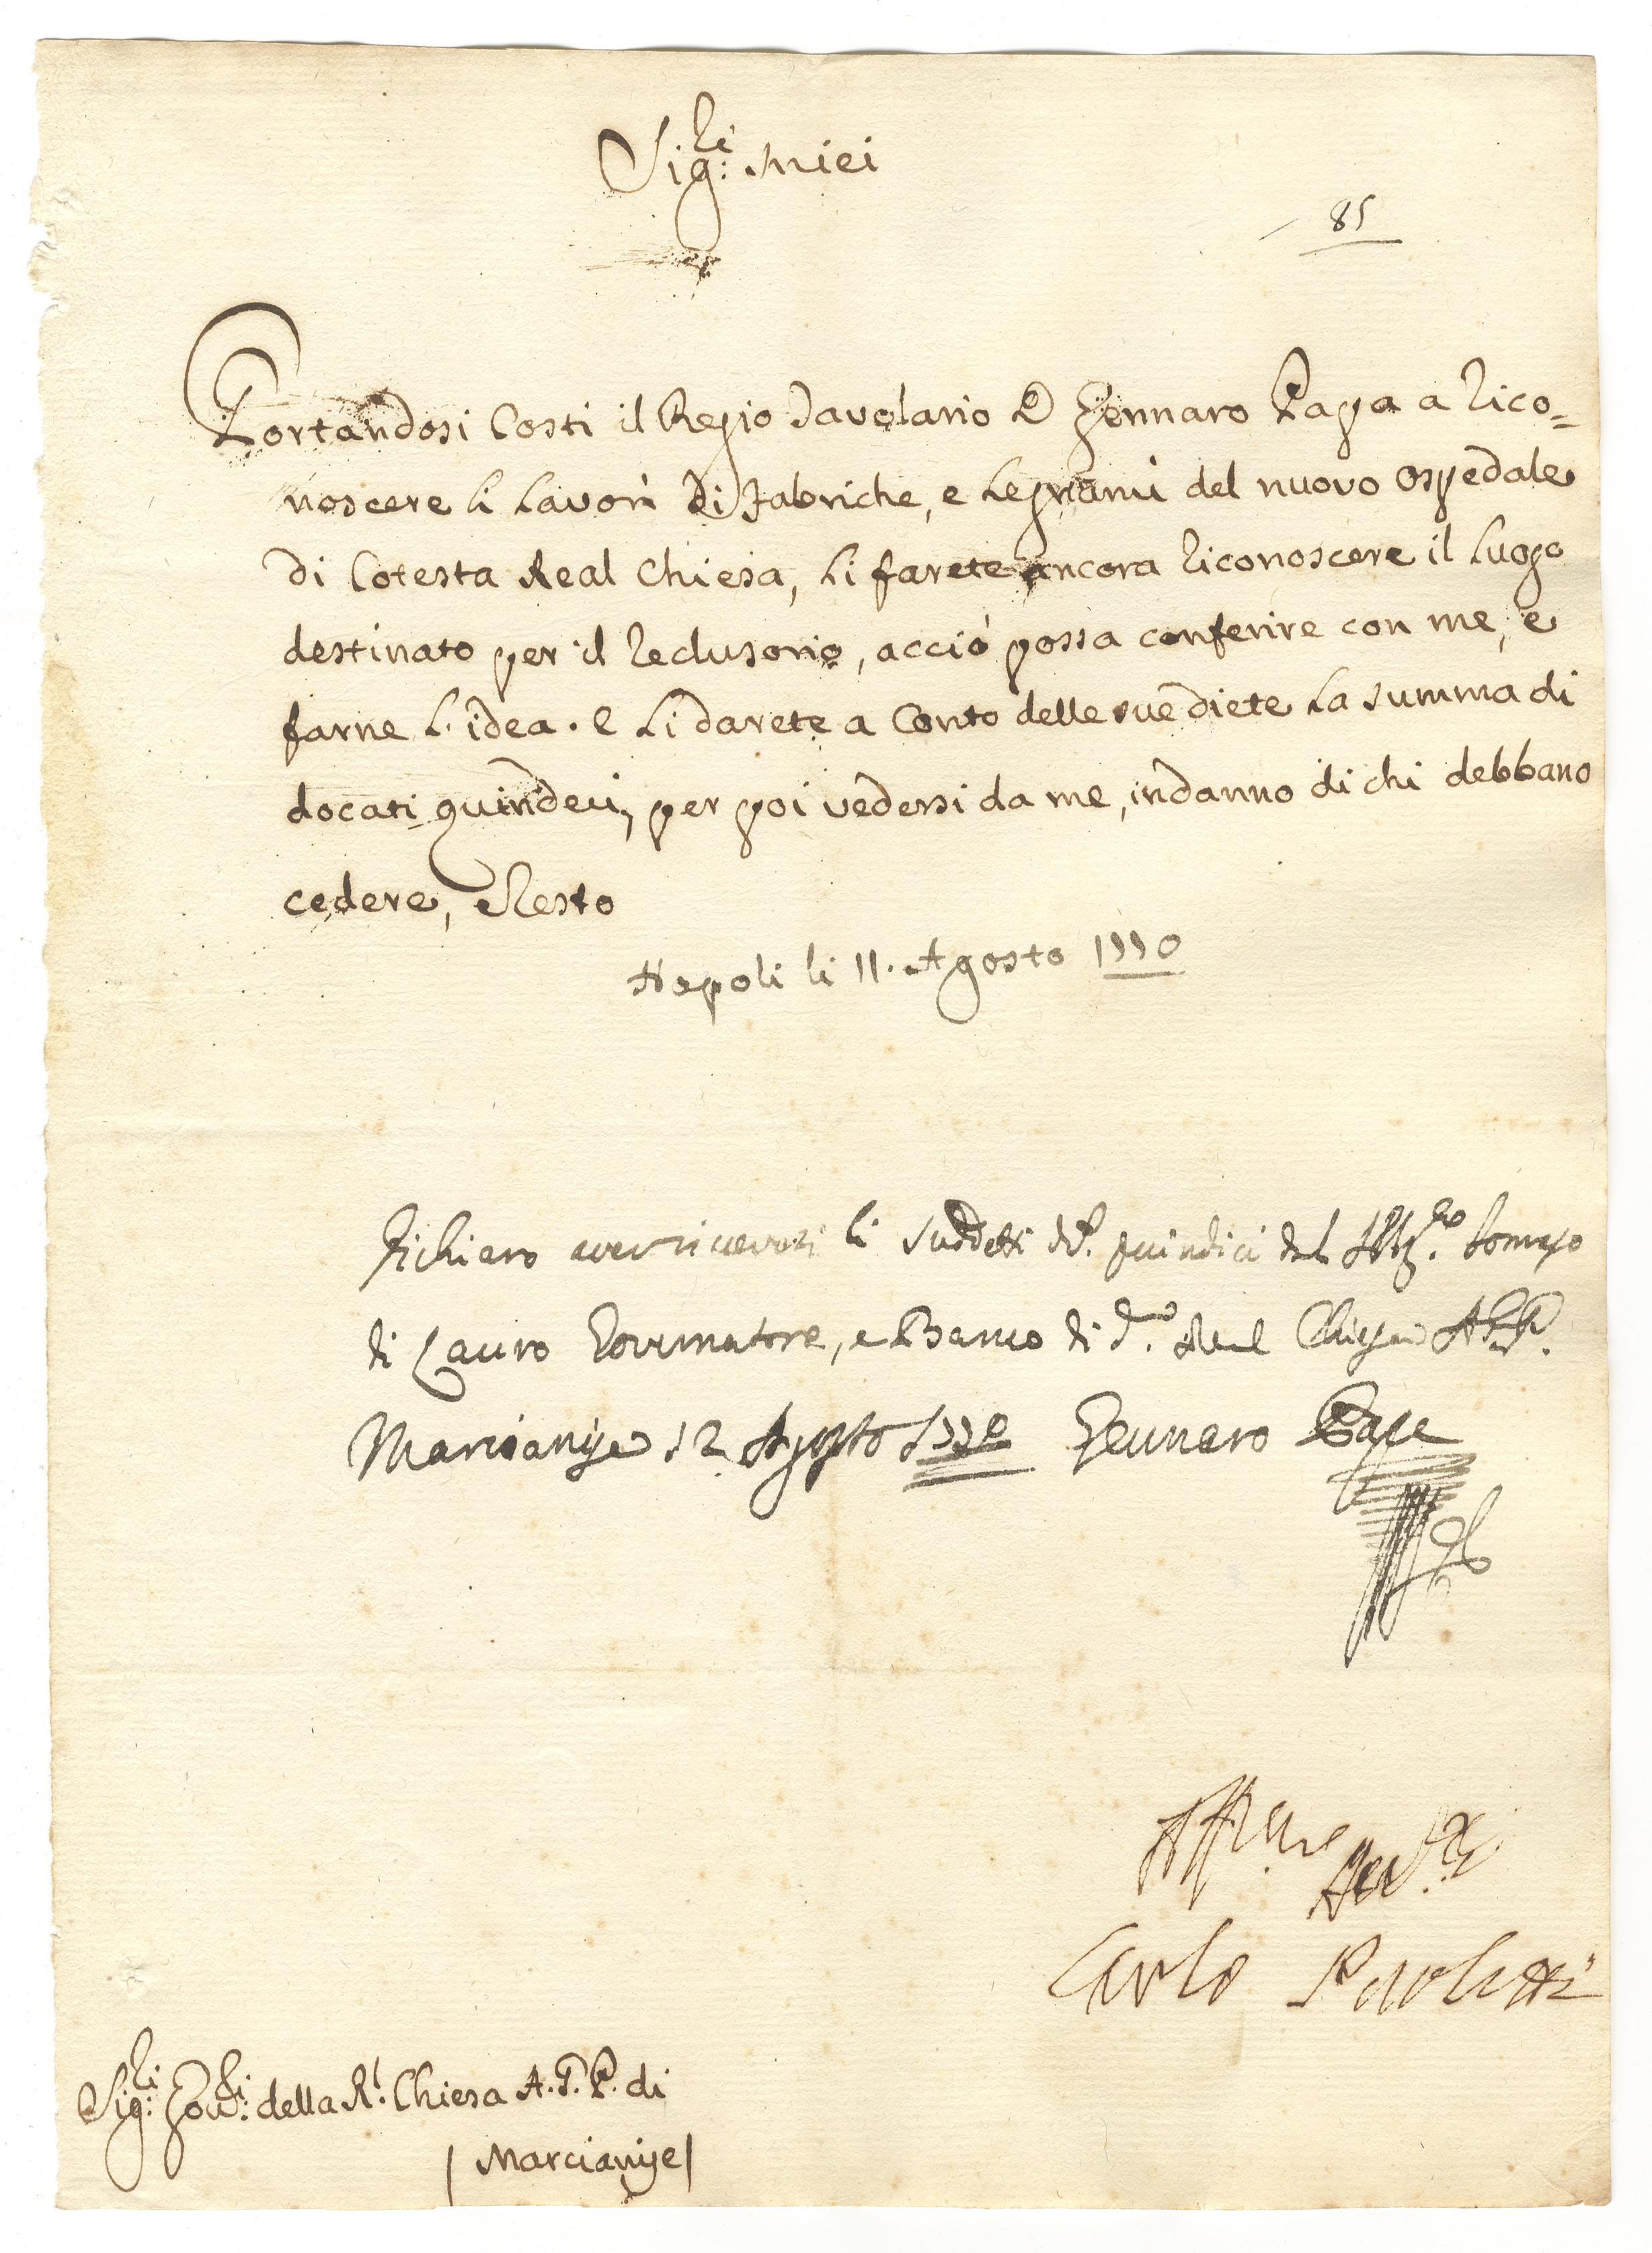 Sig.ri miei
85
Portandosi Costi il Regio Tavolario D Gennaro Papa a rico=
noscere li Lavori di fabriche, e Legnami del nuovo Ospedale
di Cotesta Real Chiesa, Li farete ancora riconoscere il Luogo
destinato per il reclusorio, acciò possa conferire con me, e
farne L'idea. E Li darete a Conto delle sue diete La summa di
docati quindeci, per poi vedersi da me, indanno di chi debbano
cedere, e Resto
Napoli li 11. Agosto 1770
Dichiaro aver ricevuti li suddetti d.ti quindici dal Mag.co Tomaso
di Lauro Governatore, e Banco di d.a Real Chiesa A.G.P.
Marcianise 12 Agosto 1770 Gennaro Papa
Aff.mo Ser.
Carlo Paoletti
Sig.ri Gov.ri della R.l Chiesa A.G.P. di
Marcianise